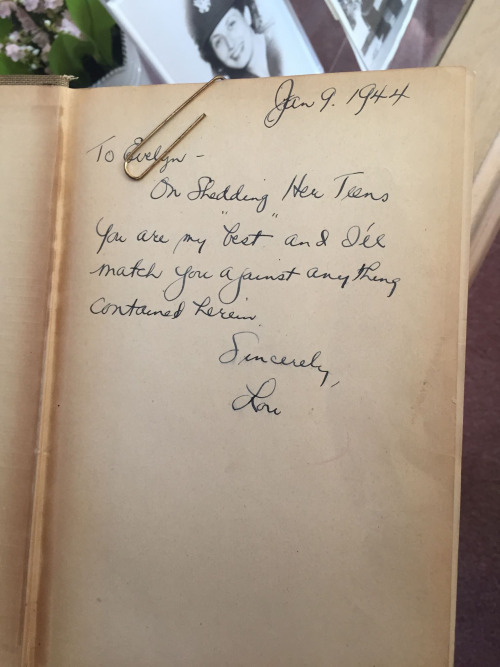 Jan 9. 1944
To Evelyn -
On Shedding Her Teens
You are my "best" and I'll
match you against anything
contained herein.
Sincerely,
Lou